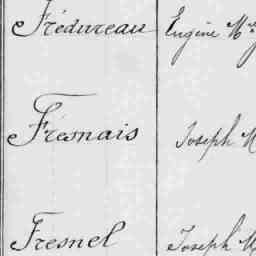 Frédureau Eugène M
Fresnais Joseph M
Fresnel Joseph M